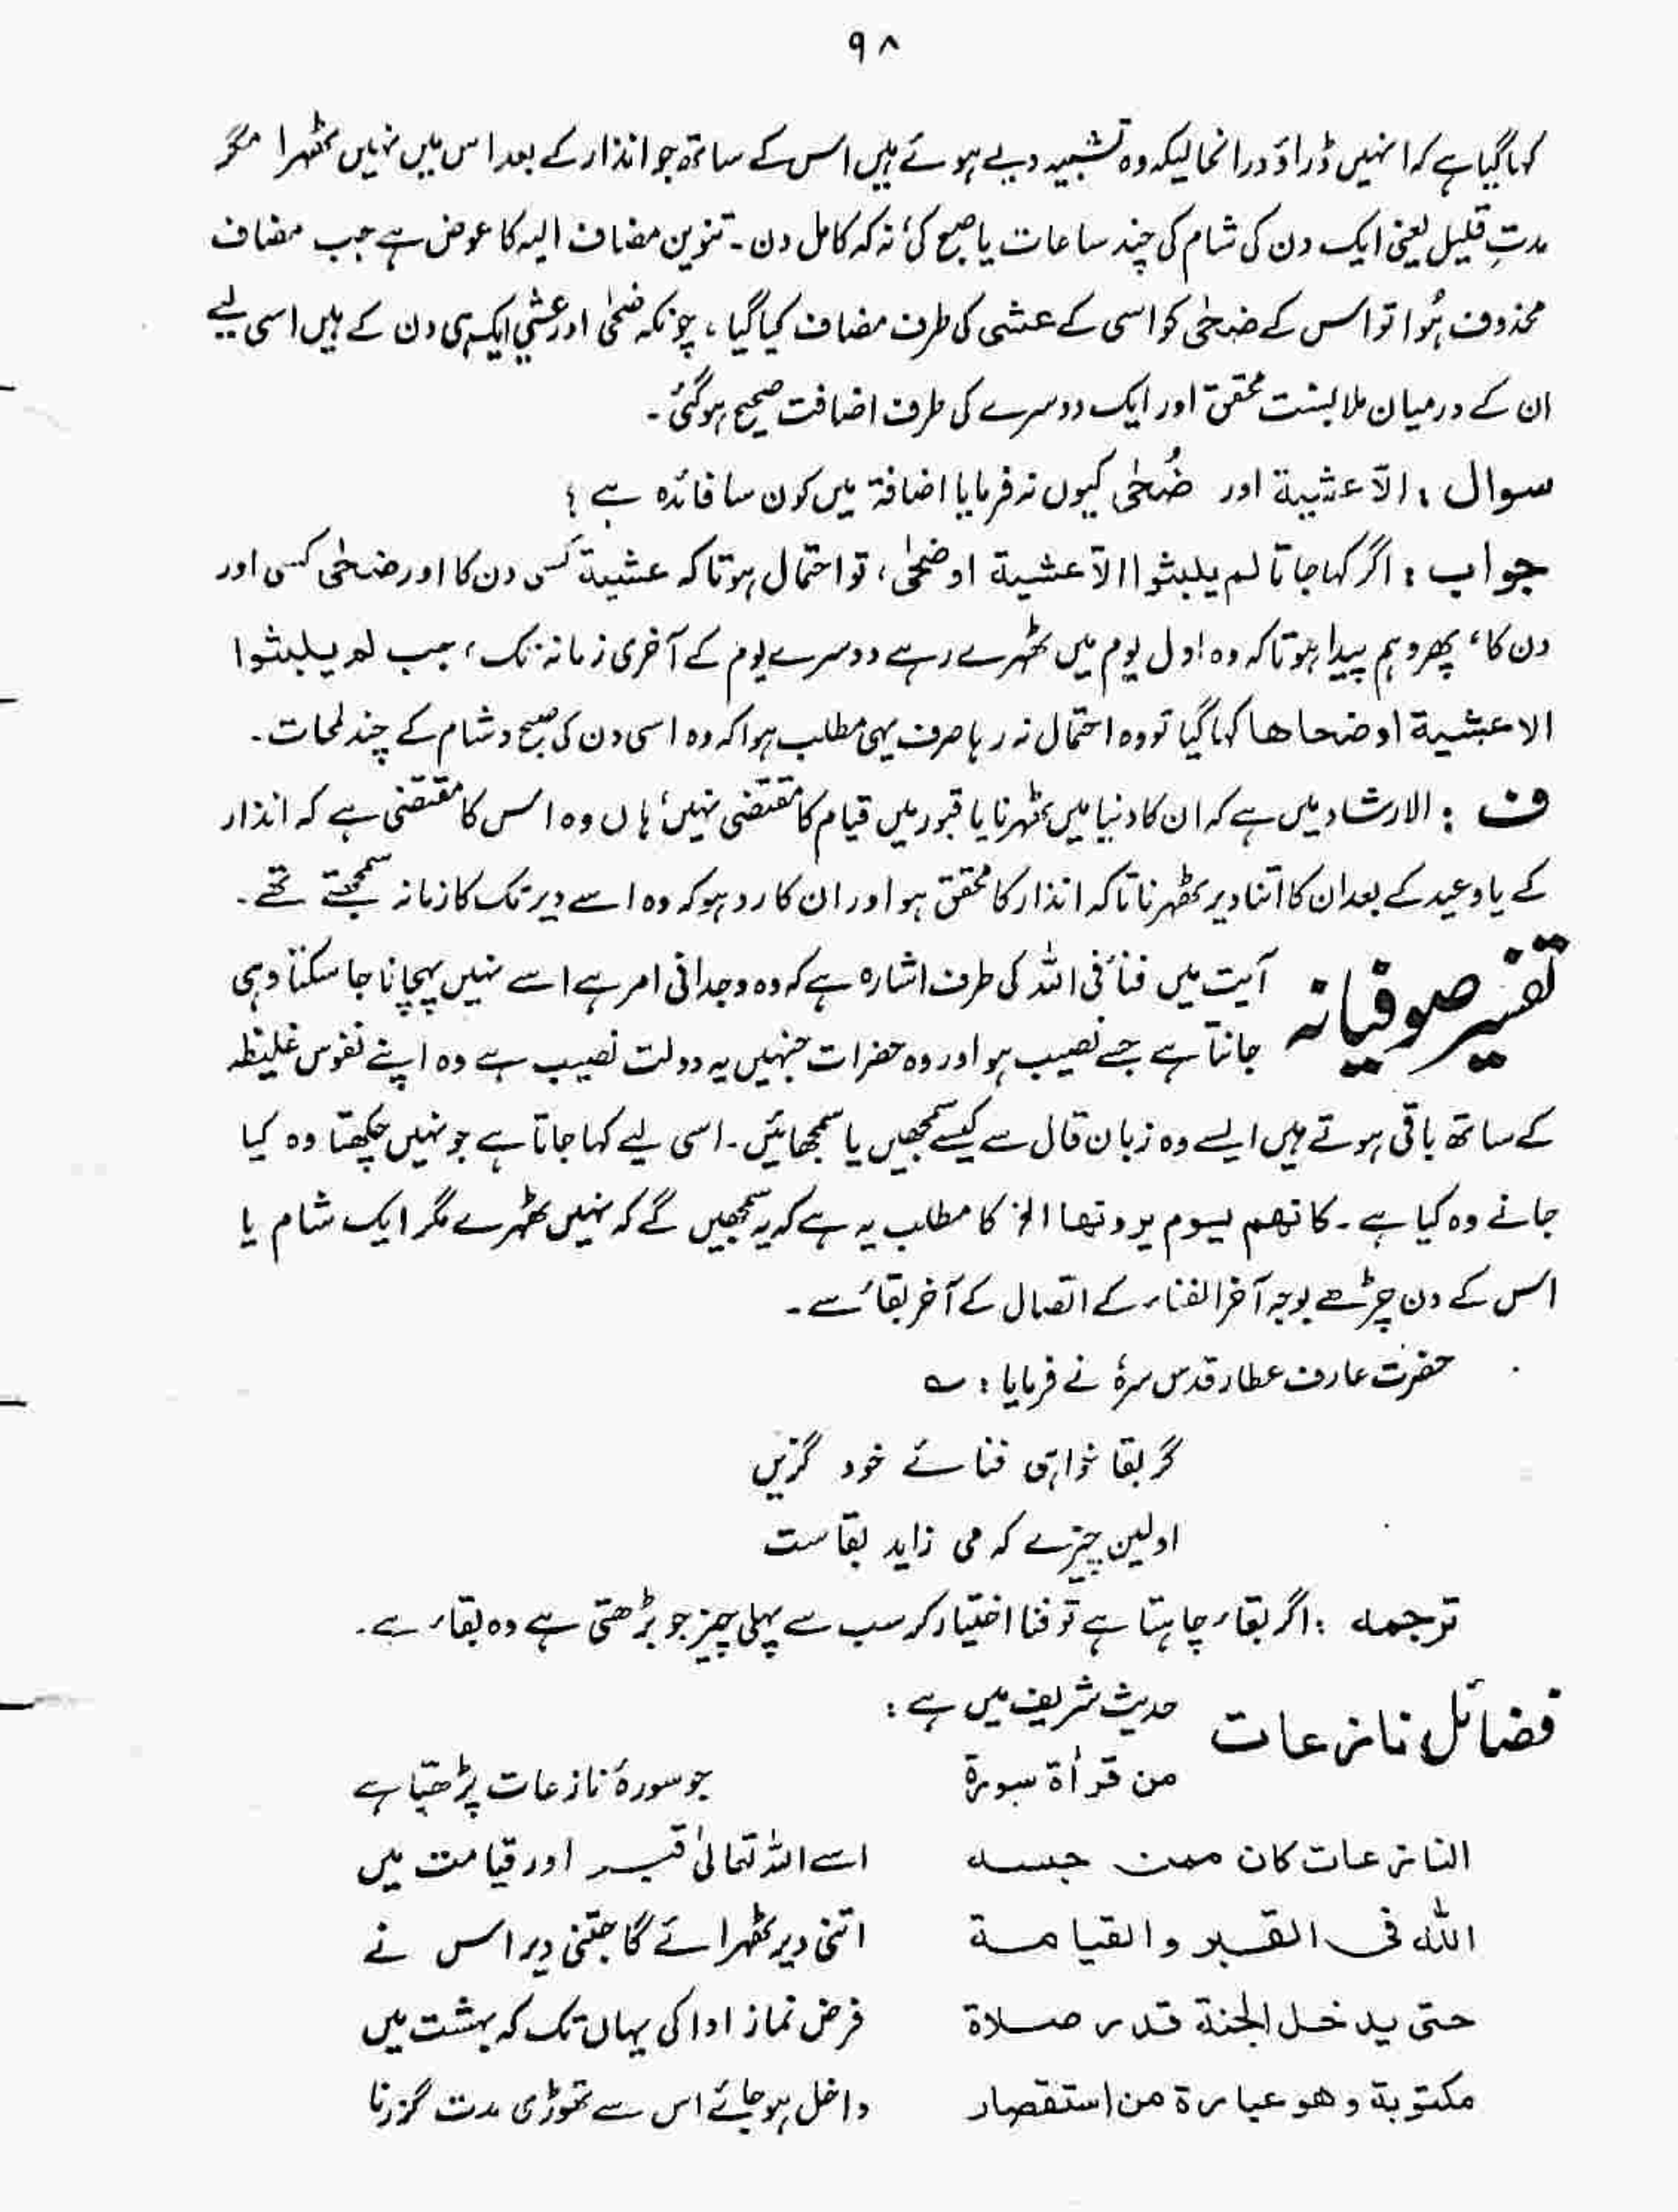 ٩٨
کہا گیا ہے کہ انہیں ڈراؤ درانحالیکہ وہ تشبیہ دیے ہوئے ہیں اس کے ساتھ جو انذار کے بعد اس میں نہیں ٹھہرا مگر
مدتِ قلیل یعنی ایک دن کی شام کی چند ساعات یا صبح کی نہ کہ کامل دن۔ تنوین مضاف الیہ کا عوض ہے جب مضاف
محذوف ہُوا تو اس کے ضحٰی کو اسی کے عشی کی طرف مضاف کیا گیا، چونکہ ضحٰی اور عشی ایک ہی دن کے ہیں اسی لیے
ان کے درمیان ملابست محقق اور ایک دوسرے کی طرف اضافت صحیح ہو گئی۔
سوال : الّا عشیۃ اور ضُحٰی کیوں نہ فرمایا اضافۃ میں کون سا فائدہ ہے ؟
جواب : اگر کہا جاتا لم یلبثوا الّا عشیۃ او ضحٰی، تو احتمال ہوتا کہ عشیۃ کسی دن کا اور ضحٰی کسی اور
دن کا، پھر وہم پیدا ہوتا کہ وہ اول یوم میں ٹھہرے رہے دوسرے یوم کے آخری زمانہ تک، جب لم یلبثوا
الا عشیۃ او ضحاھا کہا گیا تو وہ احتمال نہ رہا صرف یہی مطلب ہوا کہ وہ اسی دن کی صبح و شام کے چند لمحات۔
ف : الارشاد میں ہے کہ ان کا دنیا میں ٹھہرنا یا قبور میں قیام کا مقتضی نہیں ہاں وہ اس کا مقتضی ہے کہ انذار
کے یا وعید کے بعد ان کا اتنا دیر ٹھہرنا تاکہ انذار کا محقق ہو اور ان کا رد ہو کہ وہ اسے دیر تک کا زمانہ سمجھتے تھے۔
تفسیر صوفیانہ آیت میں فنا فی اللہ کی طرف اشارہ ہے کہ وہ وجدانی امر ہے اسے نہیں پہچانا جا سکتا وہی
جانتا ہے جسے نصیب ہو اور وہ حضرات جنہیں یہ دولت نصیب ہے وہ اپنے نفوس غلیظہ
کے ساتھ باقی ہوتے ہیں ایسے وہ زبان قال سے کیسے سمجھیں یا سمجھائیں۔ اسی لیے کہا جاتا ہے جو نہیں چکھتا وہ کیا
جانے وہ کیا ہے۔ کانھم یوم یرونھا الخ کا مطلب یہ ہے کہ یہ سمجھیں گے کہ نہیں ٹھہرے مگر ایک شام یا
اس کے دن چڑھے بوجہ آخر الفناء کے اتصال کے آخر بقاء سے۔
حضرت عارف عطار قدس سرہٗ نے فرمایا : ؎
گر بقا خواہی فنائے خود گزیں
اولین چیزے کہ می زاید بقاست
ترجمہ : اگر بقاء چاہتا ہے تو فنا اختیار کر سب سے پہلی چیز جو بڑھتی ہے وہ بقاء ہے۔
فضائل نازعات حدیث شریف میں ہے :
من قرأۃ سورۃ جو سورۂ نازعات پڑھتا ہے
النازعات کان ممن حبسہ اسے اللہ تعالٰی قبر اور قیامت میں
اللہ فی القبر والقیامۃ اتنی دیر ٹھہرائے گا جتنی دیر اس نے
حتی یدخل الجنۃ قدر صلاۃ فرض نماز ادا کی یہاں تک کہ بہشت میں
مکتوبۃ وھو عبارۃ من استقصار داخل ہو جائے اس سے تھوڑی مدت گزرنا